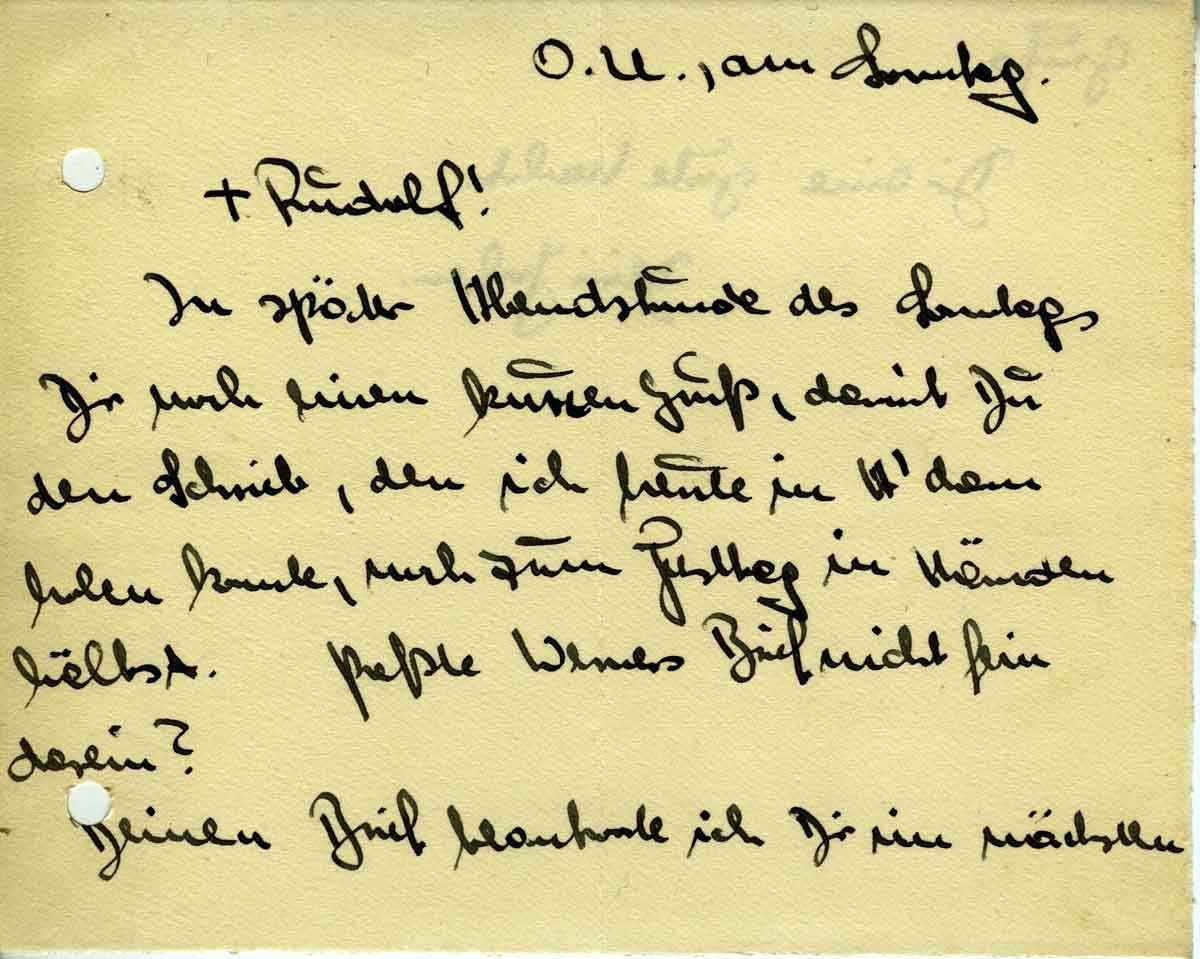 O.U., am Sonntag.
+ Rudolf!
In später Abendstunde des Sonntags
Dir noch einen kurzen Gruß, damit Du
den Schrieb, den ich heute in A'dam
holen konnte, noch zum Festtag in Händen
hältst. Paßte Werners Brief nicht fein
darein?
Deinen Brief beantworte ich Dir im nächsten